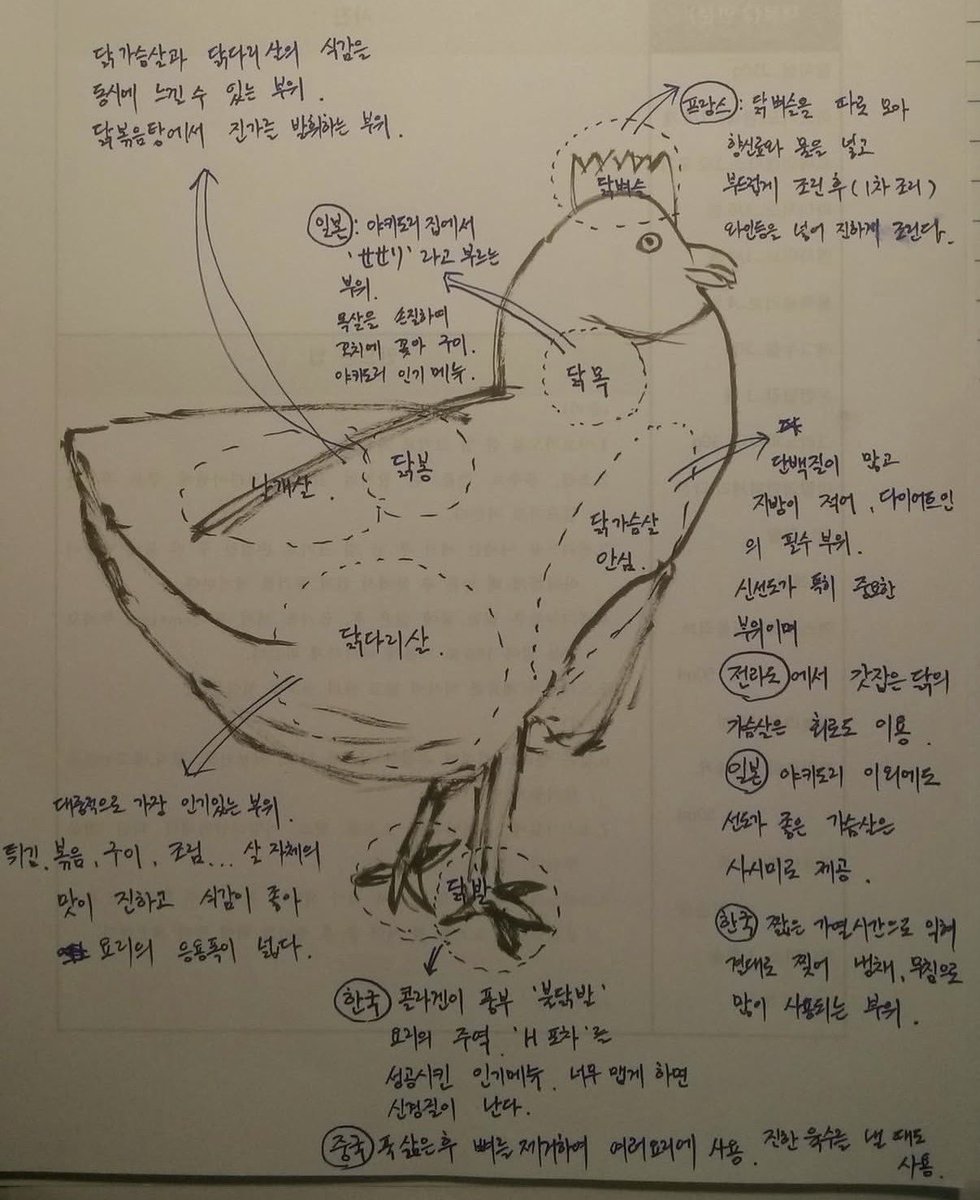 닭가슴살과 닭다리살의 식감을
동시에 느낄 수 있는 부위.
닭볶음탕에서 진가를 발휘하는 부위.
프랑스: 닭벼슬을 따로 모아
향신료와 물을 넣고
부드럽게 조린 후 (1차 조리)
와인등을 넣어 진하게 조린다.
닭벼슬
일본: 야키도리 집에서
'せせり' 라고 부르는
부위.
목살을 손질하여
꼬치에 꽂아 구이.
야키도리 인기 메뉴.
닭목
날개살.
닭봉
닭가슴살
안심.
단백질이 많고
지방이 적어, 다이어트인
의 필수 부위.
신선도가 특히 중요한
부위이며
전라도에서 갓잡은 닭의
가슴살은 회로도 이용.
일본 야키도리 이외에도
선도가 좋은 가슴살은
사시미로 제공.
한국 짧은 가열시간으로 익혀
결대로 찢어 냉채, 무침으로
많이 사용되는 부위.
닭다리살.
대중적으로 가장 인기있는 부위.
튀김, 볶음, 구이, 조림... 살 자체의
맛이 진하고 식감이 좋아
요리의 응용폭이 넓다.
닭발
한국 콜라겐이 풍부 '불닭발'
요리의 주역. 'H 포차'를
성공시킨 인기메뉴. 너무 맵게 하면
신경질이 난다.
중국 푹 삶은 후 뼈를 제거하여 여러요리에 사용. 진한 육수를 낼 때도
사용.